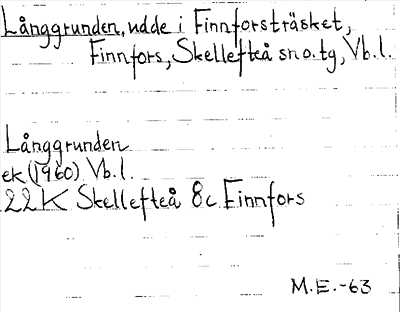 Långgrunden, udde i Finnforsträsket,
Finnfors, Skellefteå sn o. tg, Vb. l.
Långgrunden
ek (1960) Vb. l.
22K Skellefteå 8c Finnfors
M.E.-63